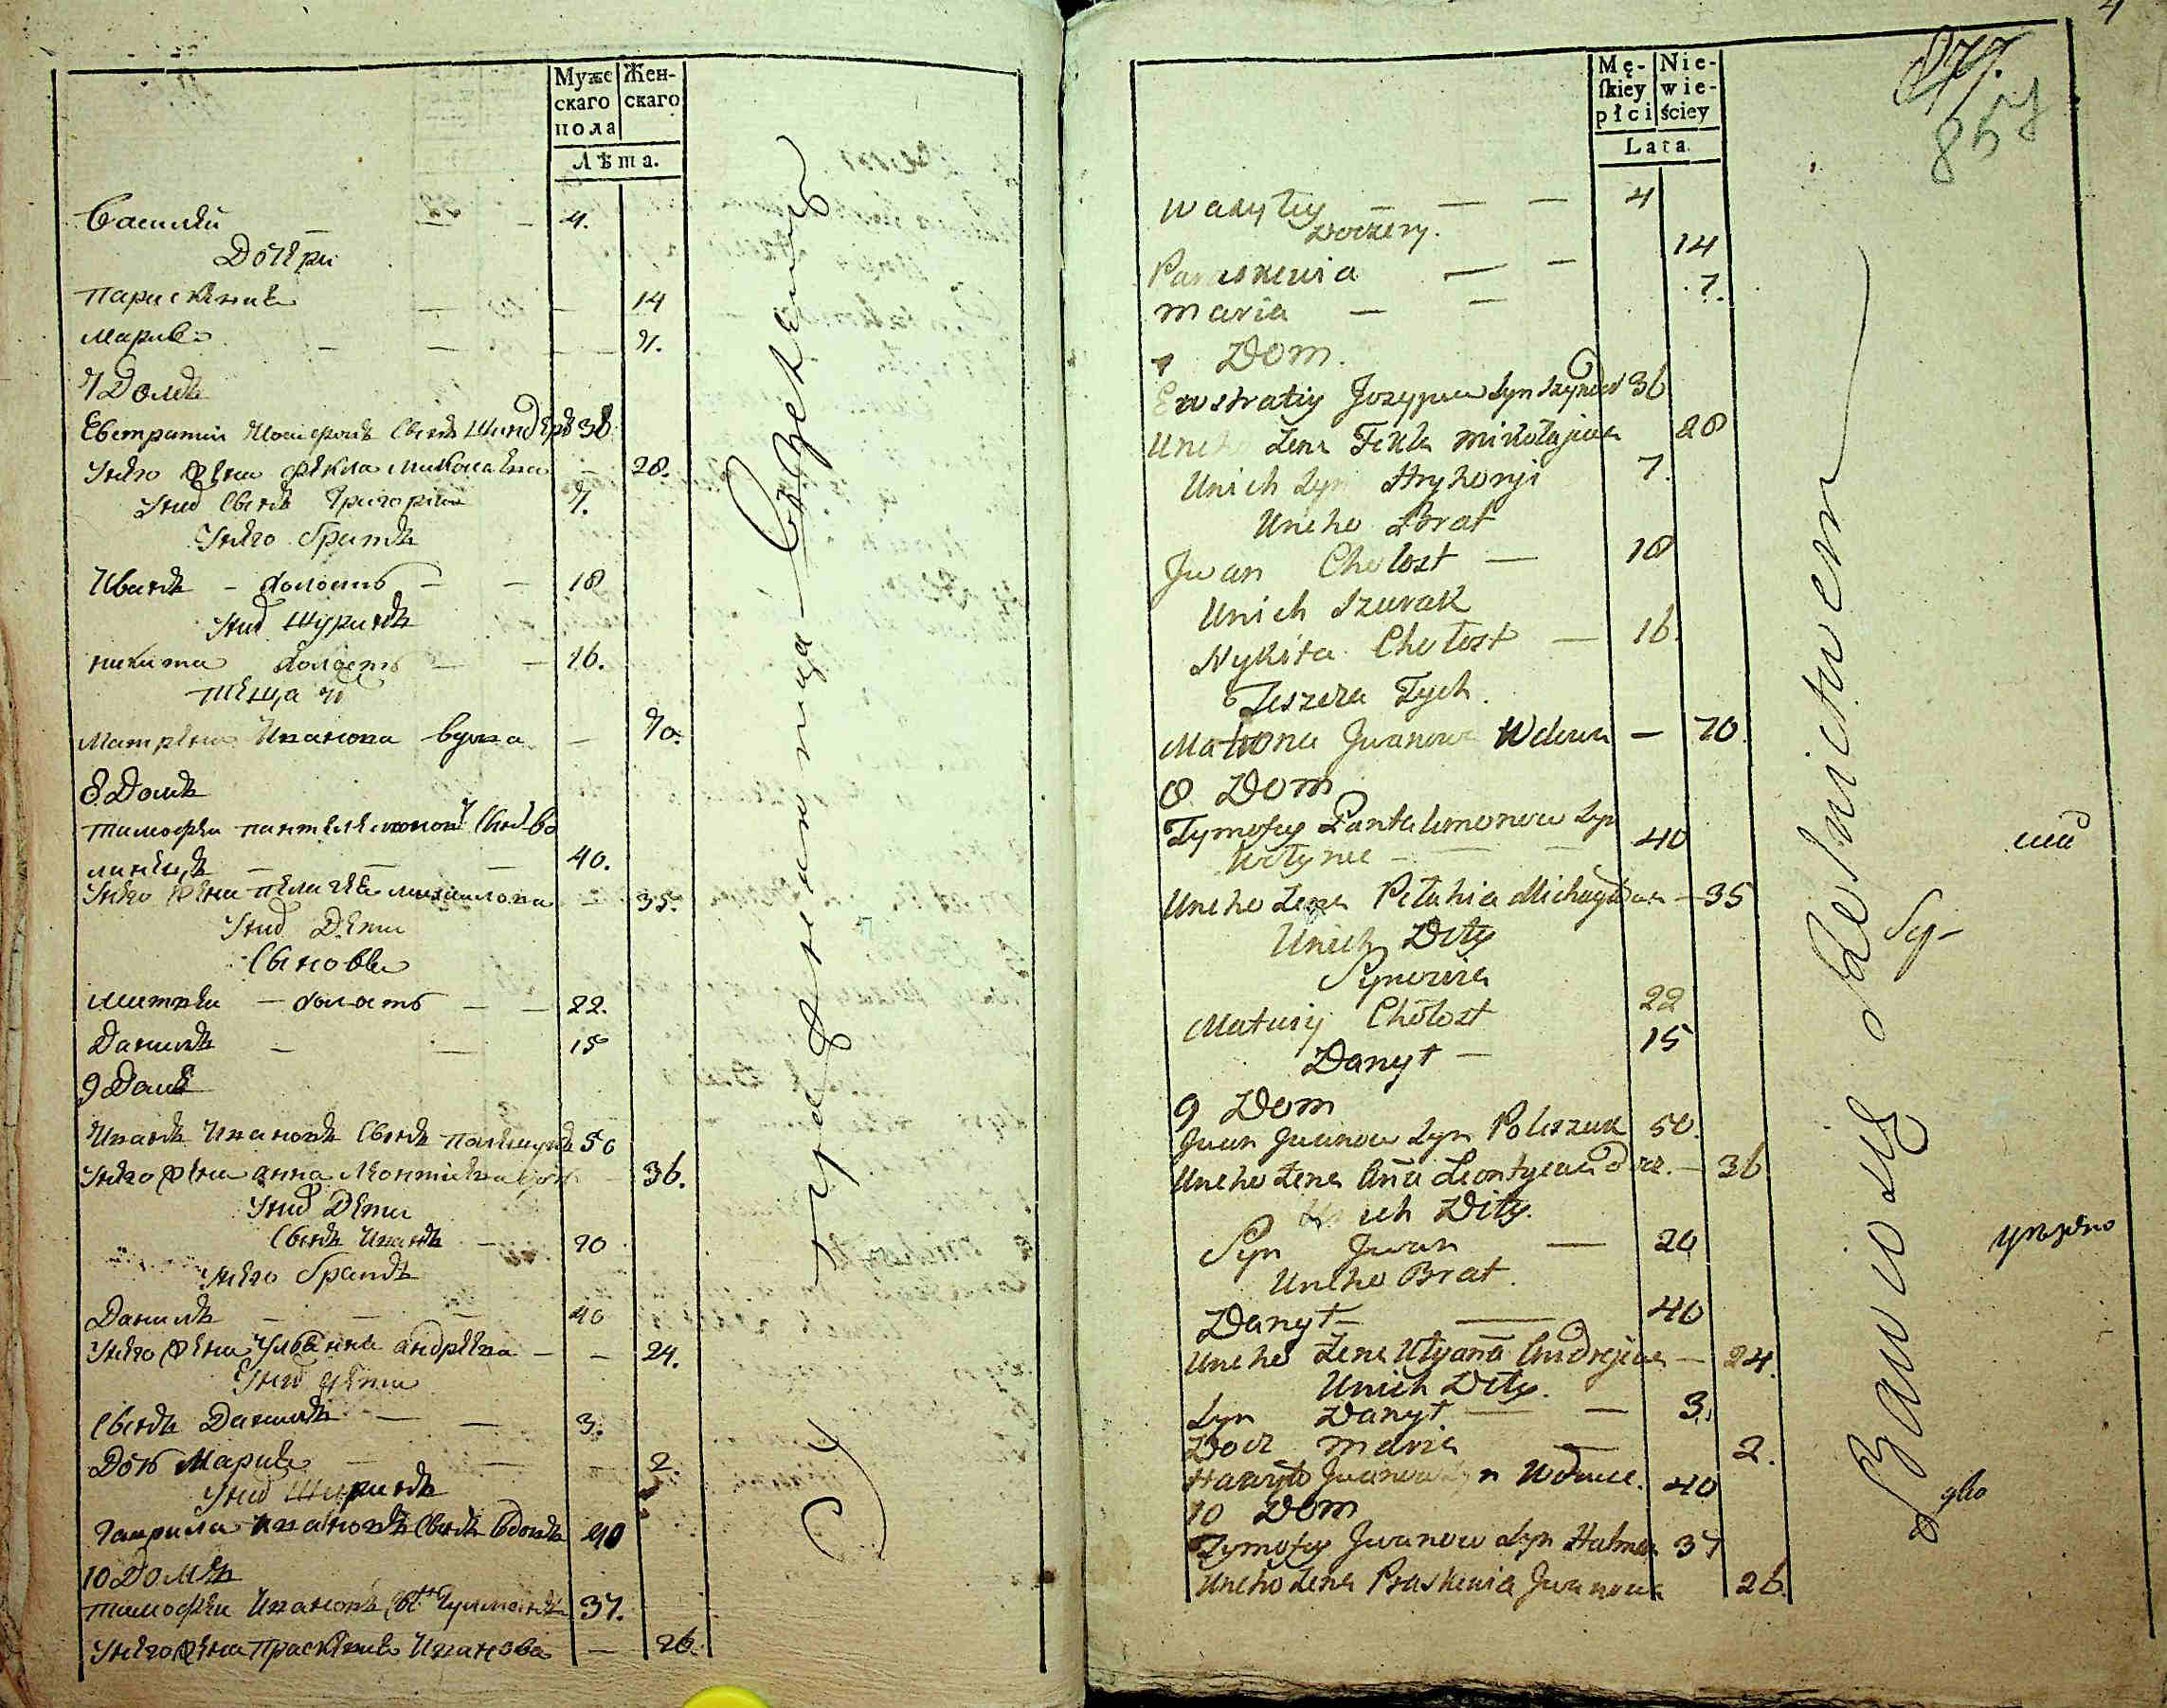 Мужескаго пола
Женскаго
Лѣта.
Василій — — — 4.
Дочери
Парасковия — — 14
Мария — — — 7.
7 Домъ
Евстратий Иосифовъ Сынъ Шиндеръ 36
Унего жена Фекла Миколаева — 28.
Унихъ Сынъ Григорий 7.
Унего братъ
Иванъ — холостъ — — 18
Унихъ Шуринъ
Никита холостъ — — 16.
Теща ихъ
Матрена Иванова вдова — 70.
8 Домъ
Тимофей Пантелемоновъ Сынъ Во
линецъ — — — 40.
Унего жена Пелагея Михайлова — 35.
Унихъ Дети
Сыновья
— холостъ — — 22.
Данило — — 15
9 Домъ
Иванъ Ивановъ Сынъ Полещукъ 50
Унего жена Анна Леонтиева — 36.
Унихъ Дети
Сынъ Иванъ — 20
Унего братъ
Данило — — — 40
Унего жена Ульянна Андреева — — 24.
Унихъ дети
Сынъ Данило — — 3.
Дочь Мария — — — 2.
Унихъ
Гаврила Ивановъ Сынъ вдовъ 40
10 Домъ
Тимофей Ивановъ Сынъ 37.
Унего жена Прасковия Иванова — 26.
4
857
Męſkiey płci
Niewieściey
Lata
Wasyly — — — 4
Doczery.
Paraskewia — — 14
Maria — — 7.
7 Dom.
Ewstratiy Jozypow Syn 36
Uneho Zena Tekla Mikołajewa 28
Unich Syn Hryhoryi 7.
Uneho Brat
Jwan Chołost — 18
Unich Szurak
Nykita Chołost — 16.
Teszcza Tych.
Matrona Jwanowa Wdowa — 70
8 Dom
Tymofey Pantalimonow Syn
Wołyneć — — — 40
Uneho Zena Pełahia Michayłowa — 35
Unich Dity
Synowia
Chołost 22
Danył — 15
9 Dom
Jwan Jwanow Syn Poliszuk 50.
Uneho Zena Anna Leontyewa — 36
Unich Dity.
Syn Jwan — 20
Uneho Brat.
Danył — — 40
Uneho Zena Ulyana Andrejewa — 24.
Unich Dity.
Syn Danył — — 3.
Docz Maria — 2.
Hawryło Jwanow Syn Wdowec. 40
10 Dom
Tymofey Jwanow Syn 37
Uneho Zena Praskewia Jwanowa 26.